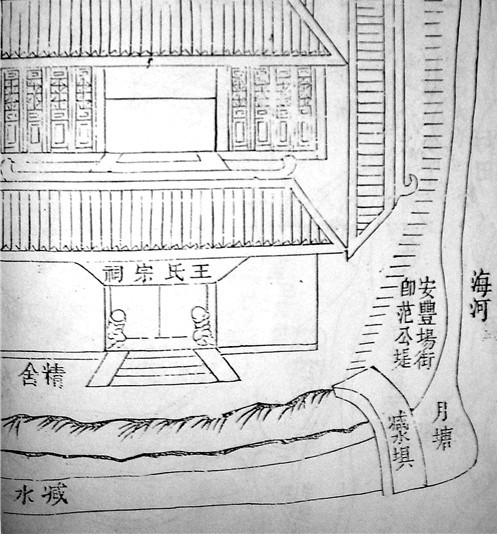 王氏宗祠
精舍
海河
安豐場街
即范公堤
月塘
水埧
水